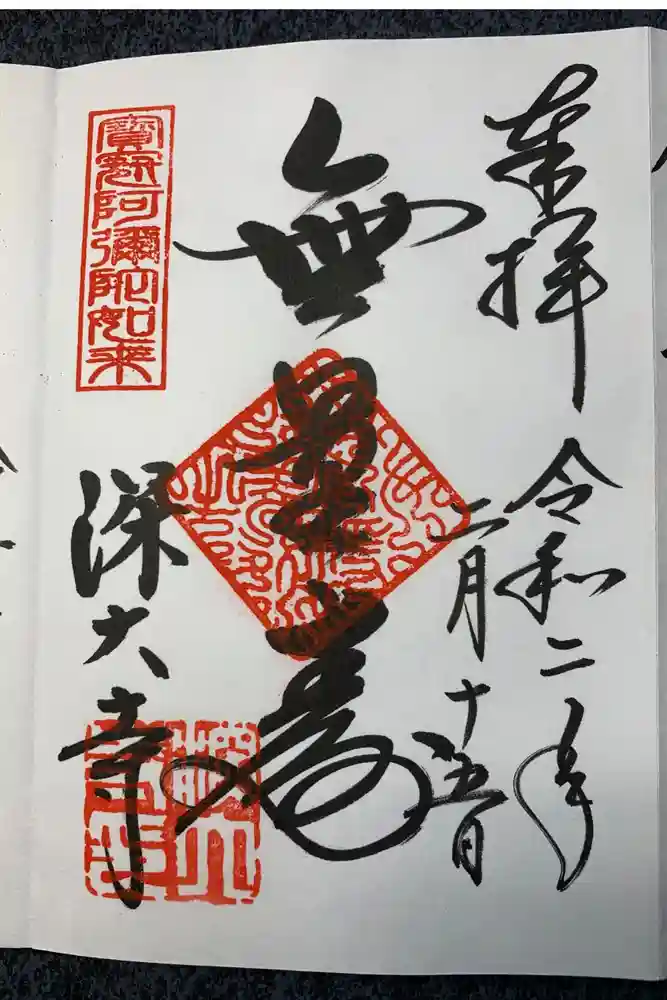 奉拝
令和二年
二月十五日
無量壽
寶冠阿彌陀如来
深大寺